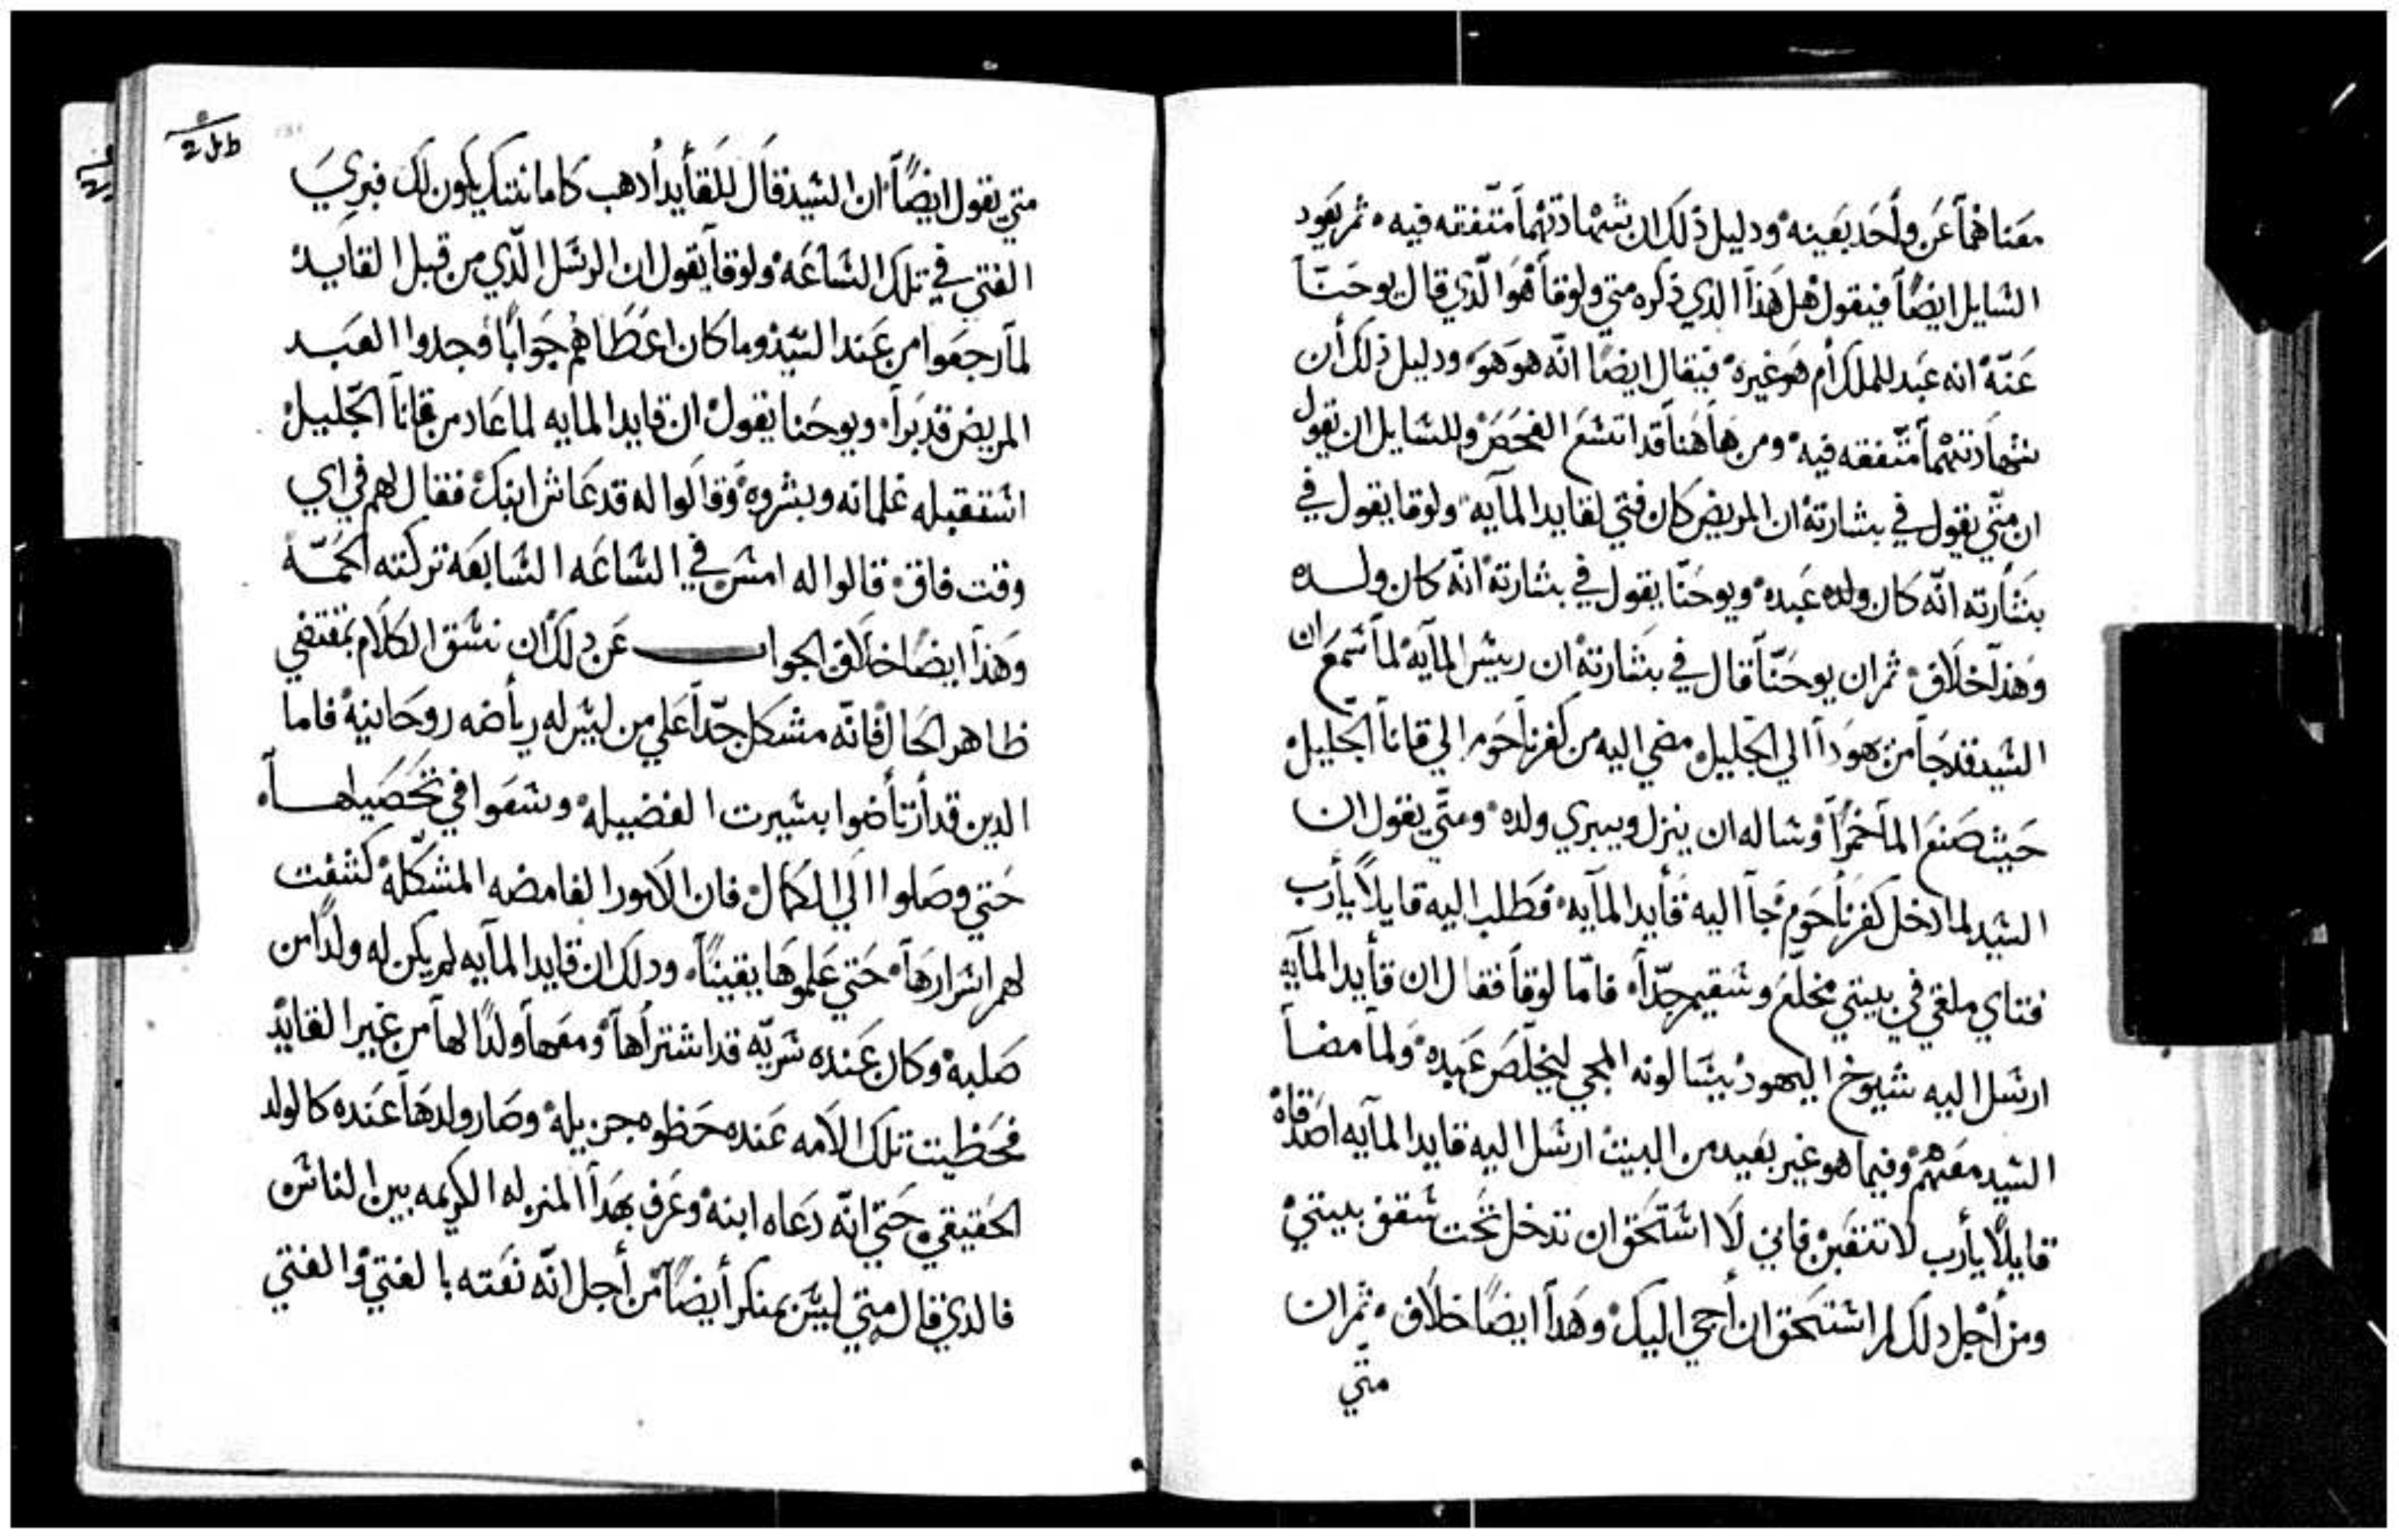 معناهما عن واحد بعينه ودليل ذلك ان شهادتهما متفقه فيه ثم يعود
السايل ايضًا فيقول هل هذا الذي ذكره متي ولوقا هو الذي قال يوحنا
عنه انه عبد للملك أم هو غيره فيقال ايضًا انه هو هو ودليل ذلك أن
شهادتهما متفقه فيه ومن هاهنا قد اتسع الفحص وللسايل ان يقول
ان متي يقول في بشارته ان المريض كان فتي لقايد المآيه ولوقا يقول في
بشارته انه كان ولده عبده ويوحنا يقول في بشارته انه كان ولده
وهذا خلاف ثم ان يوحنا قال في بشارته ان رييس المآيه لما سمع ان
السيد قد جا من يهودا الي الجليل مضي اليه من كفرناحوم الي قانا الجليل
حيث صنع الما خمرًا وساله ان ينزل ويبري ولده ومتي يقول ان
السيد لما دخل كفرناحوم جا اليه قأيد المآيه فطلب اليه قايلًا يأرب
فتاي ملقي في بيتي مخلع وسقيم جدًا فاما لوقا فقال ان قأيد المآيه
ارسل اليه شيوخ اليهود يسالونه المجي ليخلص عبده ولما مضا
السيد معهم وفيما هو غير بعيد من البيت ارسل اليه قايد المآيه اصدقاه
قايلًا يأرب لا تتعبن فاني لا استحق ان تدخل تحت سقف بيتي
ومن أجل دلك لم استحق ان أجي اليك وهدا ايضًا خلاف ثم ان
متي
متي يقول ايضًا ان السيد قال للقأيد أدهب كامانتك يكون لك فبري
الفتي في تلك الساعه ولوقا يقول ان الرسل الذي من قبل القايد
لما رجعوا من عند السيد وما كان اعطاهم جوابًا وجدوا العبد
المريض قد برا ويوحنا يقول ان قايد المايه لما عاد من قانا الجليل
استقبله غلمانه وبشروه وقالوا له قد عاش ابنك فقال لهم في اي
وقت فاق قالوا له امس في الساعه السابعه تركته الحمه
وهذا ايضًا خلاف الجواب عن دلك ان نسق الكلام بمقتضي
ظاهر الحال فانه مشكل جدًا علي من ليس له رياضه روحانيه فاما
الدين قد أرتأضوا بسيرت الفضيله وسعوا في تحصيلها
حتي وصلوا الي الكمال فان الامور الغامضه المشكله كشفت
لهم اسرارها حتي علموها يقينًا ودلك ان قايد المآيه لم يكن له ولدًا من
صلبه وكان عنده سريه قد اشتراها ومعها ولدًا لها من غير القايد
فحظيت تلك الامه عنده حظوه جزيله وصار ولدها عنده كالولد
الحقيقي حتي انه دعاه ابنه وعرف بهدا المنزله الكريمه بين الناس
فالدي قال متي ليس بمنكر أيضًا من أجل انه نعته بالفتي والفتي